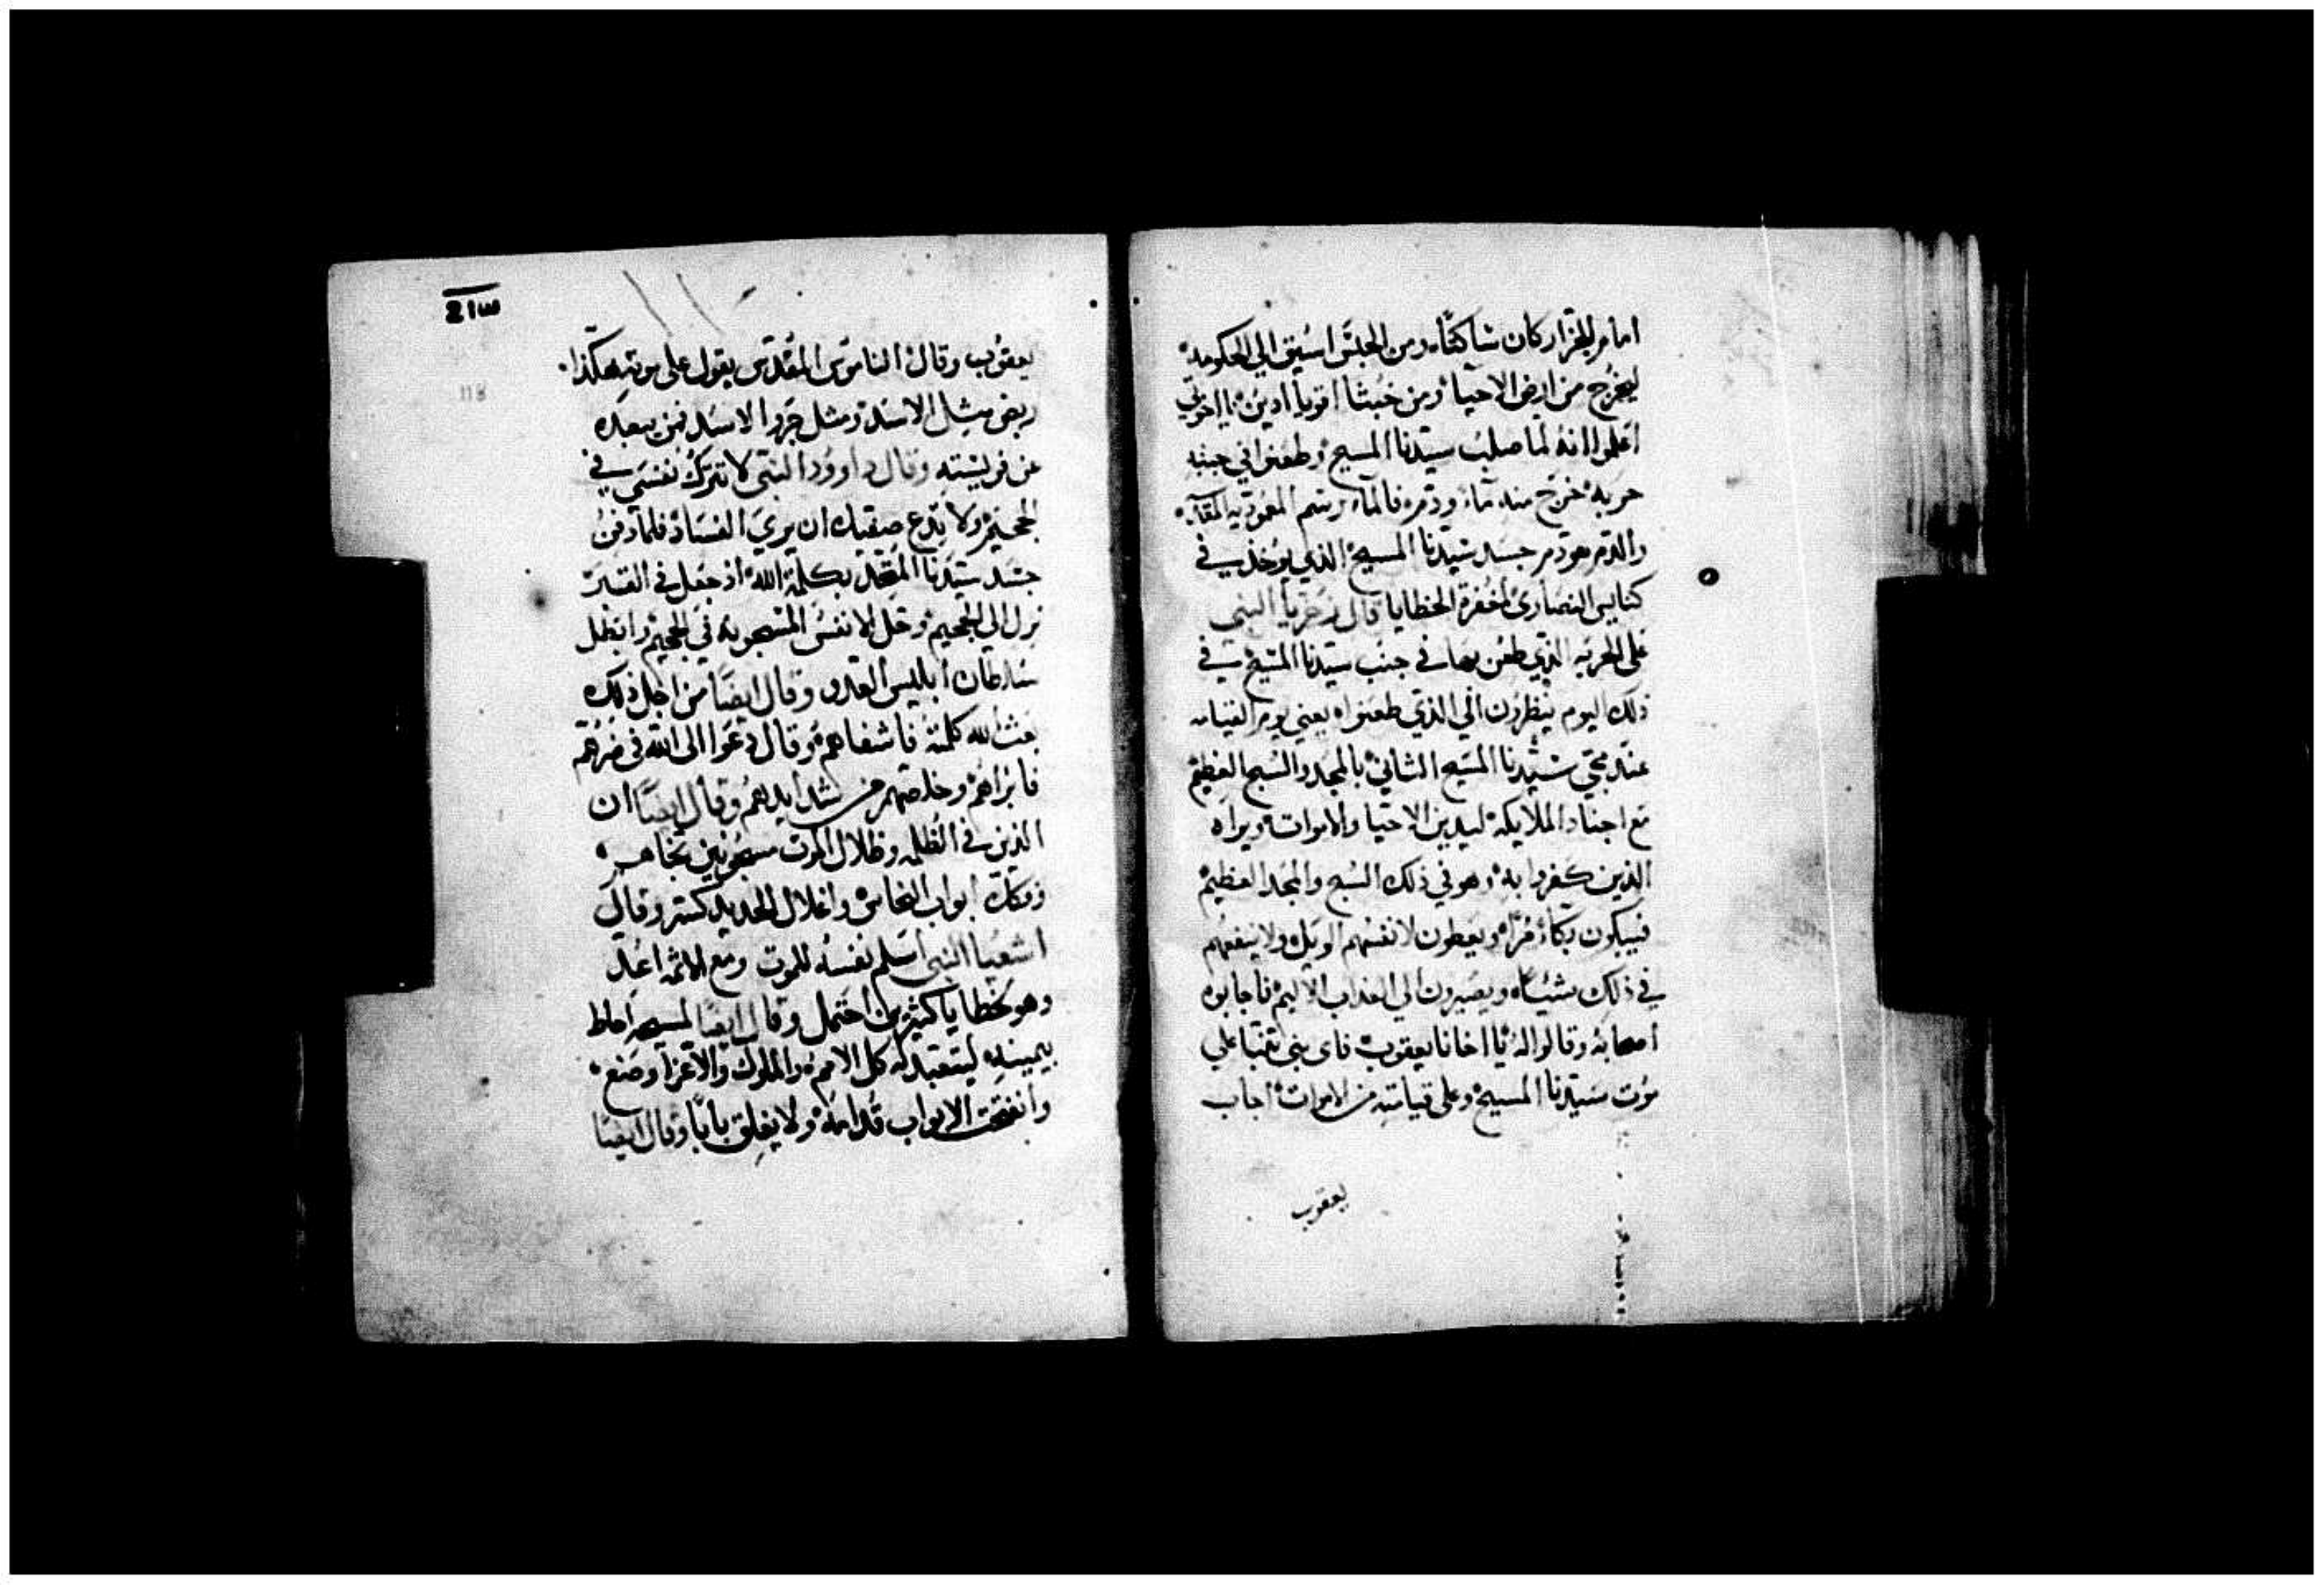 امام الجزار كان ساكتًا ومن الحبس اسيق الي الحكومه
ليخرج من ارض الاحيا ومن خبثا اقوياء ادين يا اخوتي
اعلموا انه لما صلب سيدنا المسيح وطعنوا في جنبه
حربه خرج منه ماء ودم فالماء رسم المعوديه
والدم هو دم جسد سيدنا المسيح الذي يوخذ في
كنايس النصاري لمغفرة الخطايا قال زخريا النبي
على الحربه الذي طعن بها في جنب سيدنا المسيح في
ذلك اليوم ينظرون الي الذي طعنواه يعني يوم القيامه
عند مجي سيدنا المسيح الثاني بالمجد والسبح العظيم
مع اجناد الملايكه ليدين الاحيا والاموات ويراه
الذين كفروا به وهو في ذلك السبح والمجد العظيم
فيبكون بكاء مرًا ويعطون لانفسهم الويل ولا ينفعهم
في ذلك شيًا ويصيرون الي العذاب الاليم فاجابوه
اصحابه وقالوا له يا اخانا يعقوب فاي نبي تنبا علي
موت سيدنا المسيح وعلي قيامته من الاموات اجاب
يعقوب
118
يعقوب وقال الناموس المقدس يقول علي موته هكذا
ربض مثل الاسد ومثل جروا الاسد فمن يبعده
عن فريسته وقال داوود النبي لا تترك نفسي في
الجحيم ولا تدع صفيك ان يري الفساد فلما دفن
جسد سيدنا المتحد بكلمة الله اذ جعل في القبر
نزل الي الجحيم وحل الانفس المسجونة في الجحيم وابطل
سلطان ابليس العدو وقال ايضًا من اجل ذلك
بعث الله كلمته فاشفاهم وقال دعوا الى الله في ضرهم
فابراهم وخلصهم من شدايدهم وقال ايضًا ان
الذين في الظلمه وظلال الموت مسجونين نجاهم
وفكك ابواب النحاس واغلال الحديد كسر وقال
اشعيا النبي اسلم نفسه للموت ومع الاثمه اعد
وهو لخطايا كثيرين احتمل وقال ايضًا لمسيحه احاط
بيمينه ليتعبد له كل الامم والملوك والاعزا وضع
وانفتحت الابواب قدامه ولا يغلق بابًا وقال ايضًا